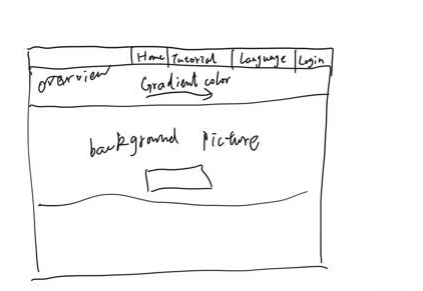 Home Tutorial Language Login
overview Gradient color
background picture